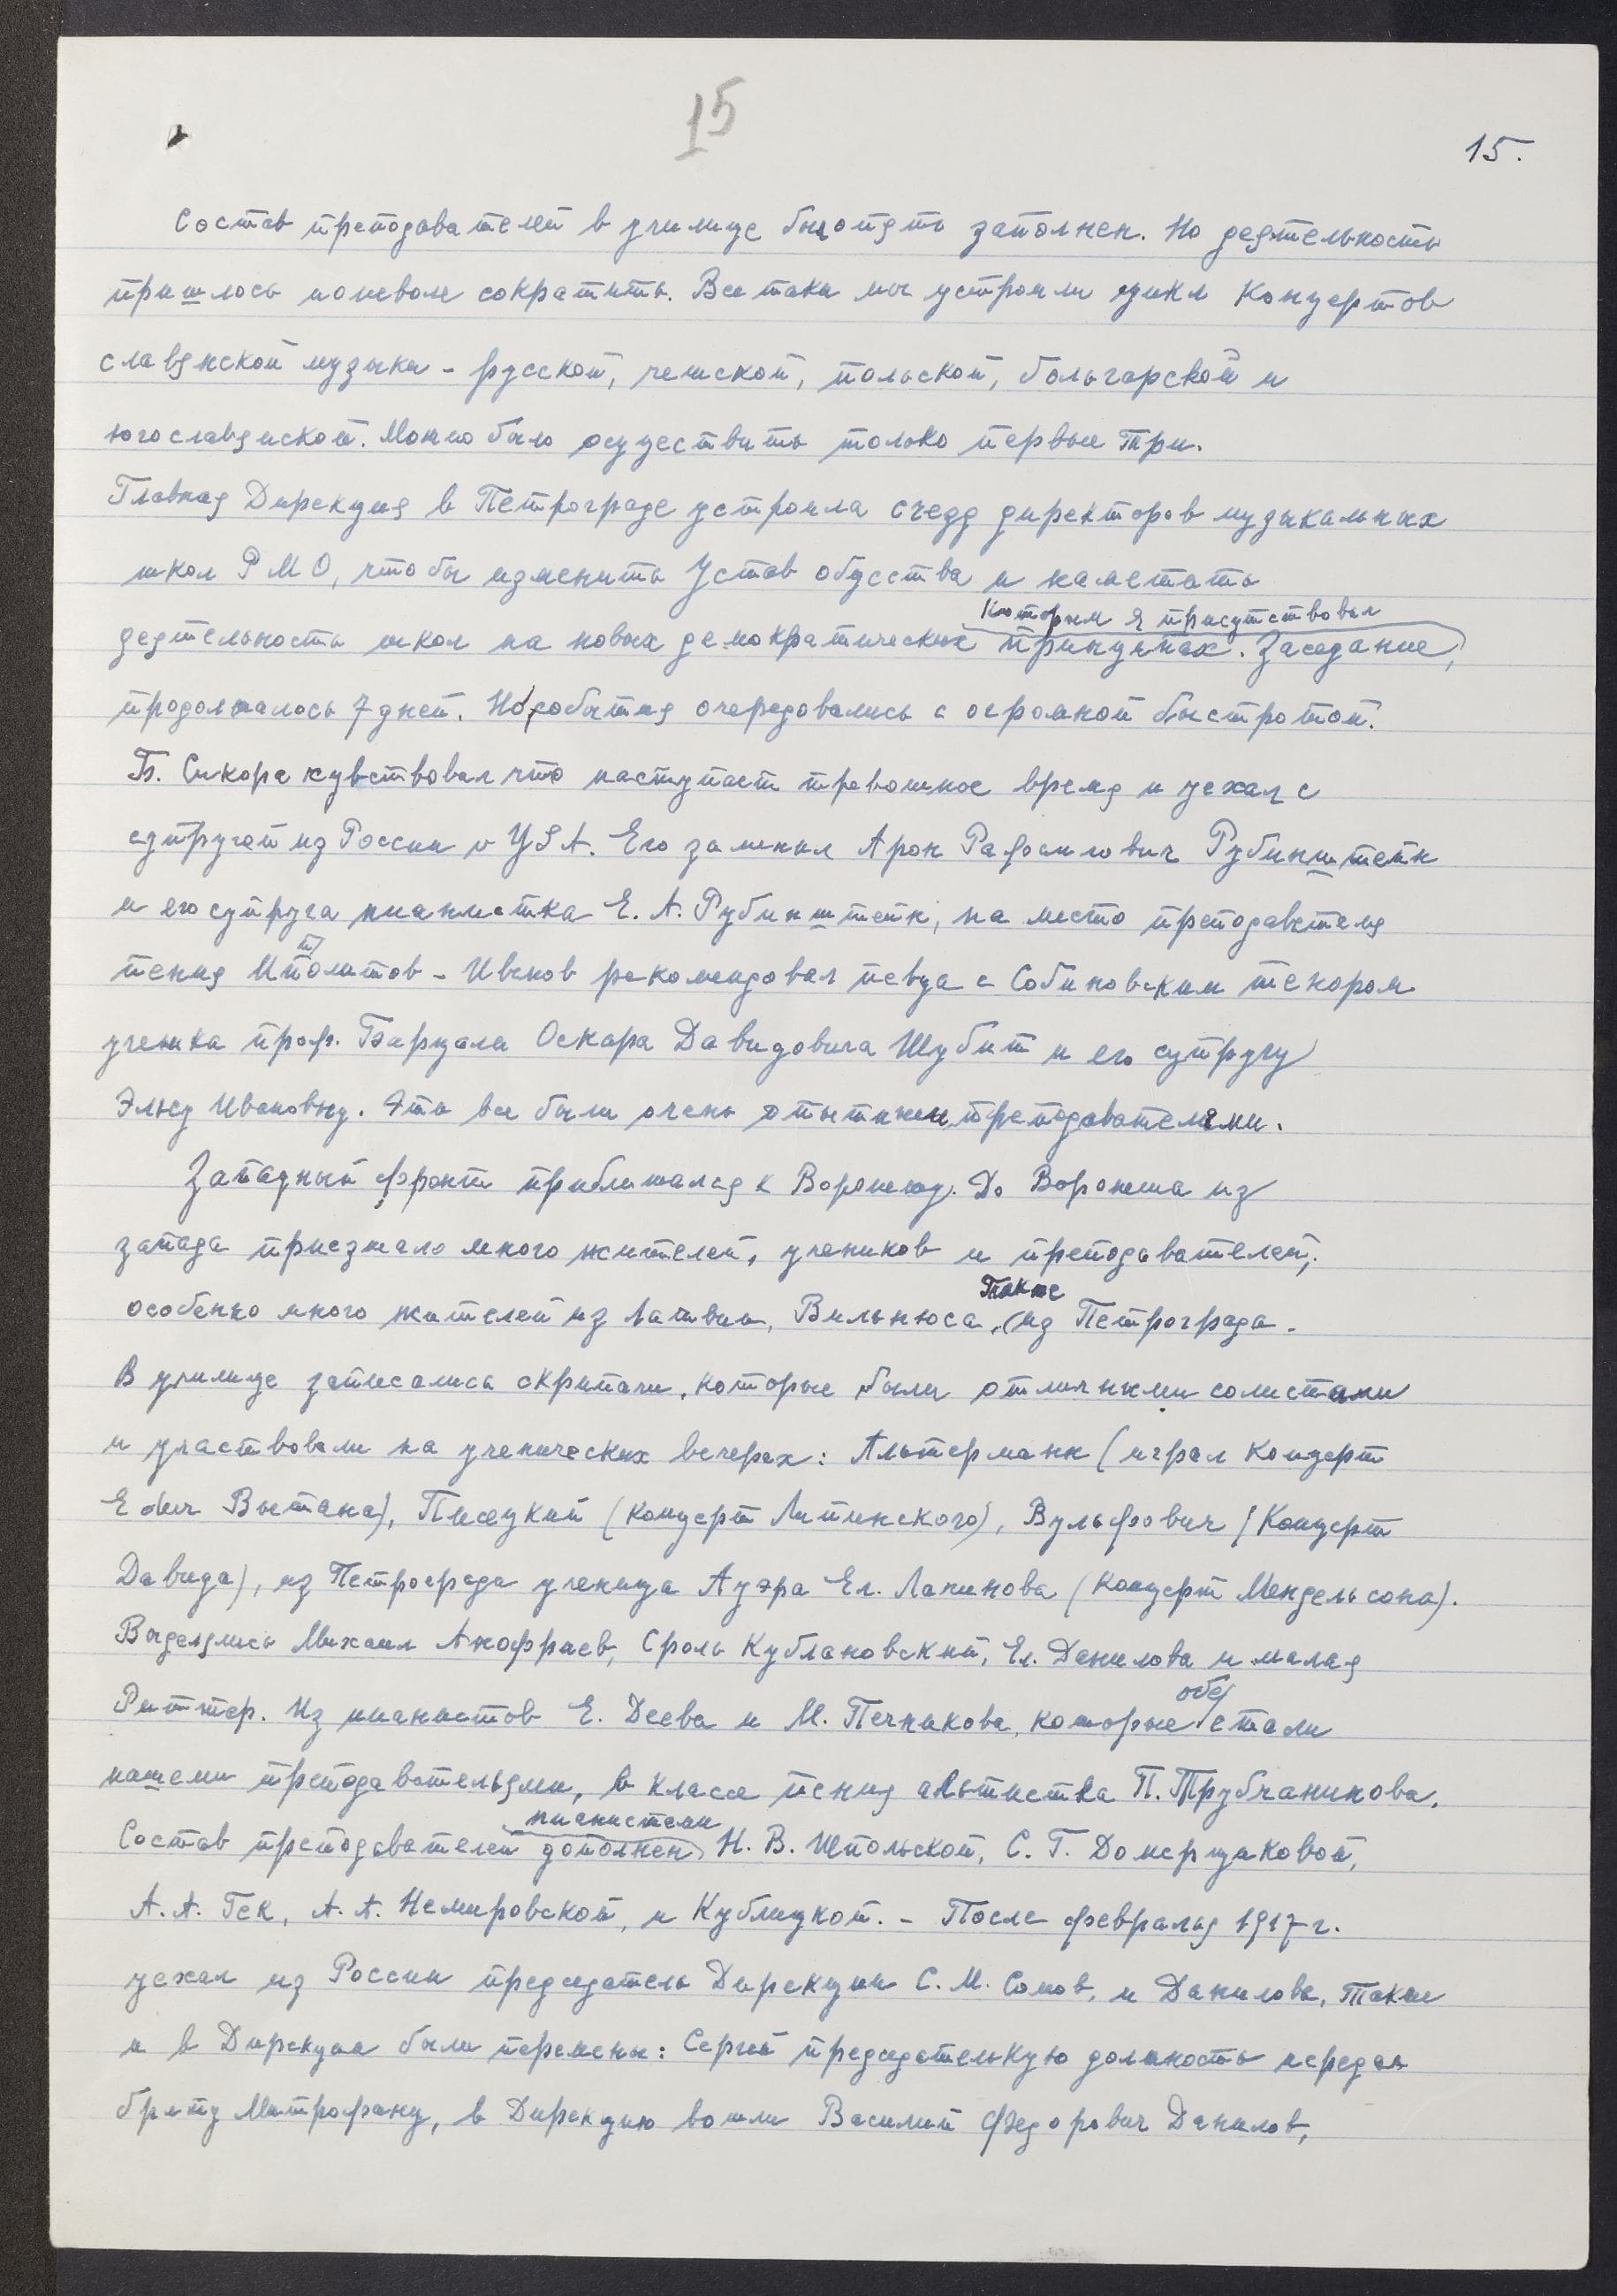 15
15.
Состав преподавателей в училище был опять заполнен. Но деятельность
пришлось поневоле сократить. Все таки мы устроили цикл концертов
славянской музыки - русской, чешской, польской, болгарской и
югославянской. Можно было осуществить только первые три.
Главная Дирекция в Петрограде устроила съезд директоров музыкальных
школ РМО, что бы изменить Устав общества и наметать
которым я присутствовал
деятельность школ на новых демократических принципах. Заседание,
продолжалось 7 дней. Но события очередовались с огромной быстротой.
Б. Сикора чувствовал что наступает тревожное время и уехал с
супругой из России в USA. Его заменил Арон Рафаилович Рубинштейн
и его супруга пианистка Е. А. Рубинштейн, на место преподавателя
пения Ипполитов - Иванов рекомендовал певца с Собиновским тенором
ученика проф. Барцала Оскара Давидовича Шубит и его супругу
Эльзу Ивановну. Эти все были очень опытными преподавателями.
Западный фронт приближался к Воронежу. До Воронежа из
запада приезжало много жителей, учеников и преподавателей,
также
особенно много жителей из Латвии, Вильнюса, из Петрограда.
В училище записались скрипачи, которые были отличными солистами
и участвовали на ученических вечерах: Альтерманн (играл Концерт
E dur Вьетана), Писецкий (Концерт Липинского), Вульфович (Концерт
Давида), из Петрограда ученица Ауэра Ел. Лапинова (Концерт Мендельсона).
Выделялись Михаил Анофриев, Сроль Кублановский, Ел. Данилова и малая
Риттер. Из пианистов Е. Деева и М. Печникова, которые обе стали
нашеми преподавательями, в классе пения альтистка П. Трубчанинова.
пианистами
Состав преподавателей дополнен Н. В. Шпольской, С. Г. Домерщиковой,
А. А. Гек, А. А. Немировской, и Кублицкой. - После февраля 1917 г.
уехал из России председатель Дирекции С. М. Сомов, и Данилова, также
и в Дирекции были перемены: Сергей председательную должность передал
брату Митрофану, в Дирекцию вошли Василий Федорович Данилов,